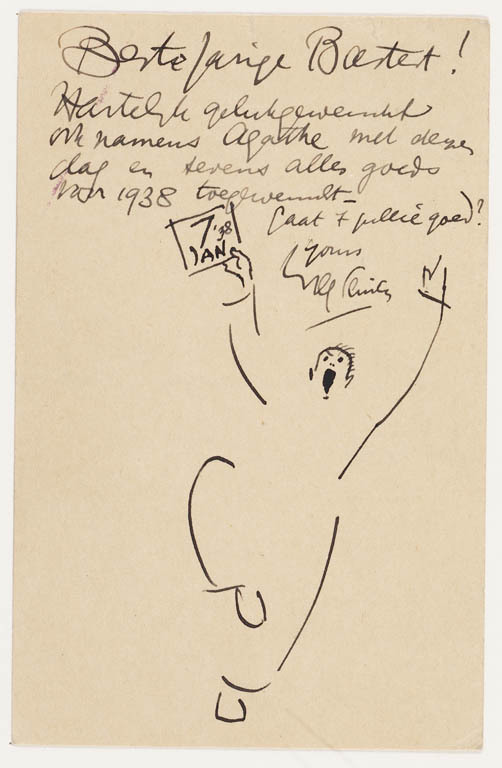 Beste Jarige Bastert!
Hartelijk gelukgewenscht
ook namens Agathe met dezen
dag en tevens alles goeds
voor 1938 toegewenscht -
Gaat 't jullie goed?
yours
7 '38
JAN